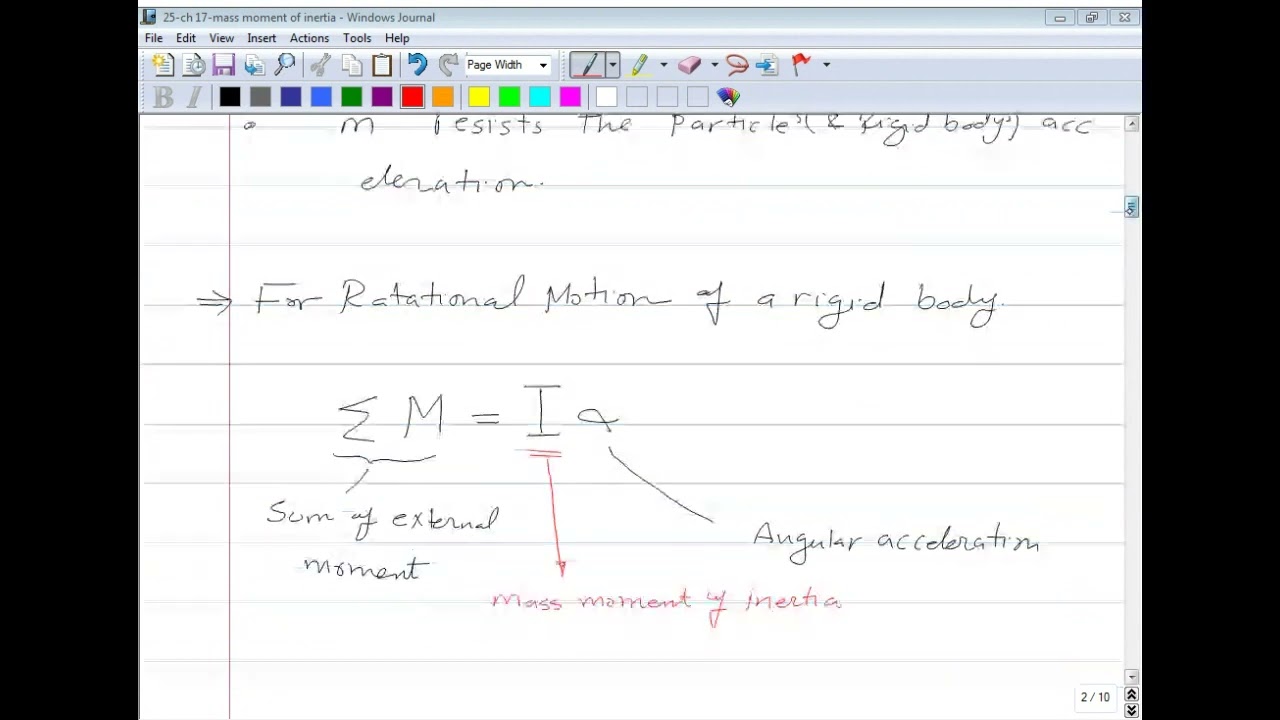 25-ch 17-mass moment of inertia - Windows Journal
File Edit View Insert Actions Tools Help
Page Width
B I
m resists The Particle's (& Rigid body's) acc
eleration.
⇒ For Rotational Motion of a rigid body.
∑ M = I α
Sum of external
moment
Angular acceleration
Mass moment of Inertia
2 / 10